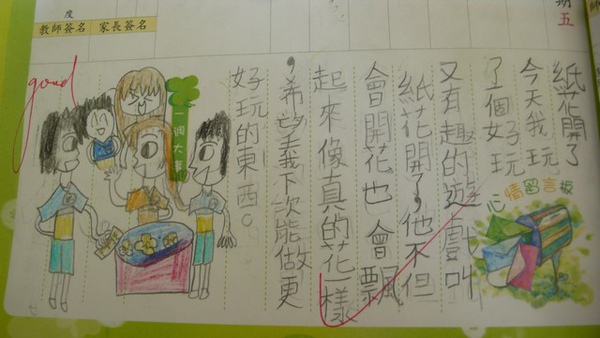 期五
度
教師簽名 家長簽名
紙花開了
今天我玩
了個好玩
又有趣的遊戲叫
紙花開了,他不但
會開花也會飄
起來像真的花一樣
,希望我下次能做更
好玩的東西。
心情留言板
一週大事
good